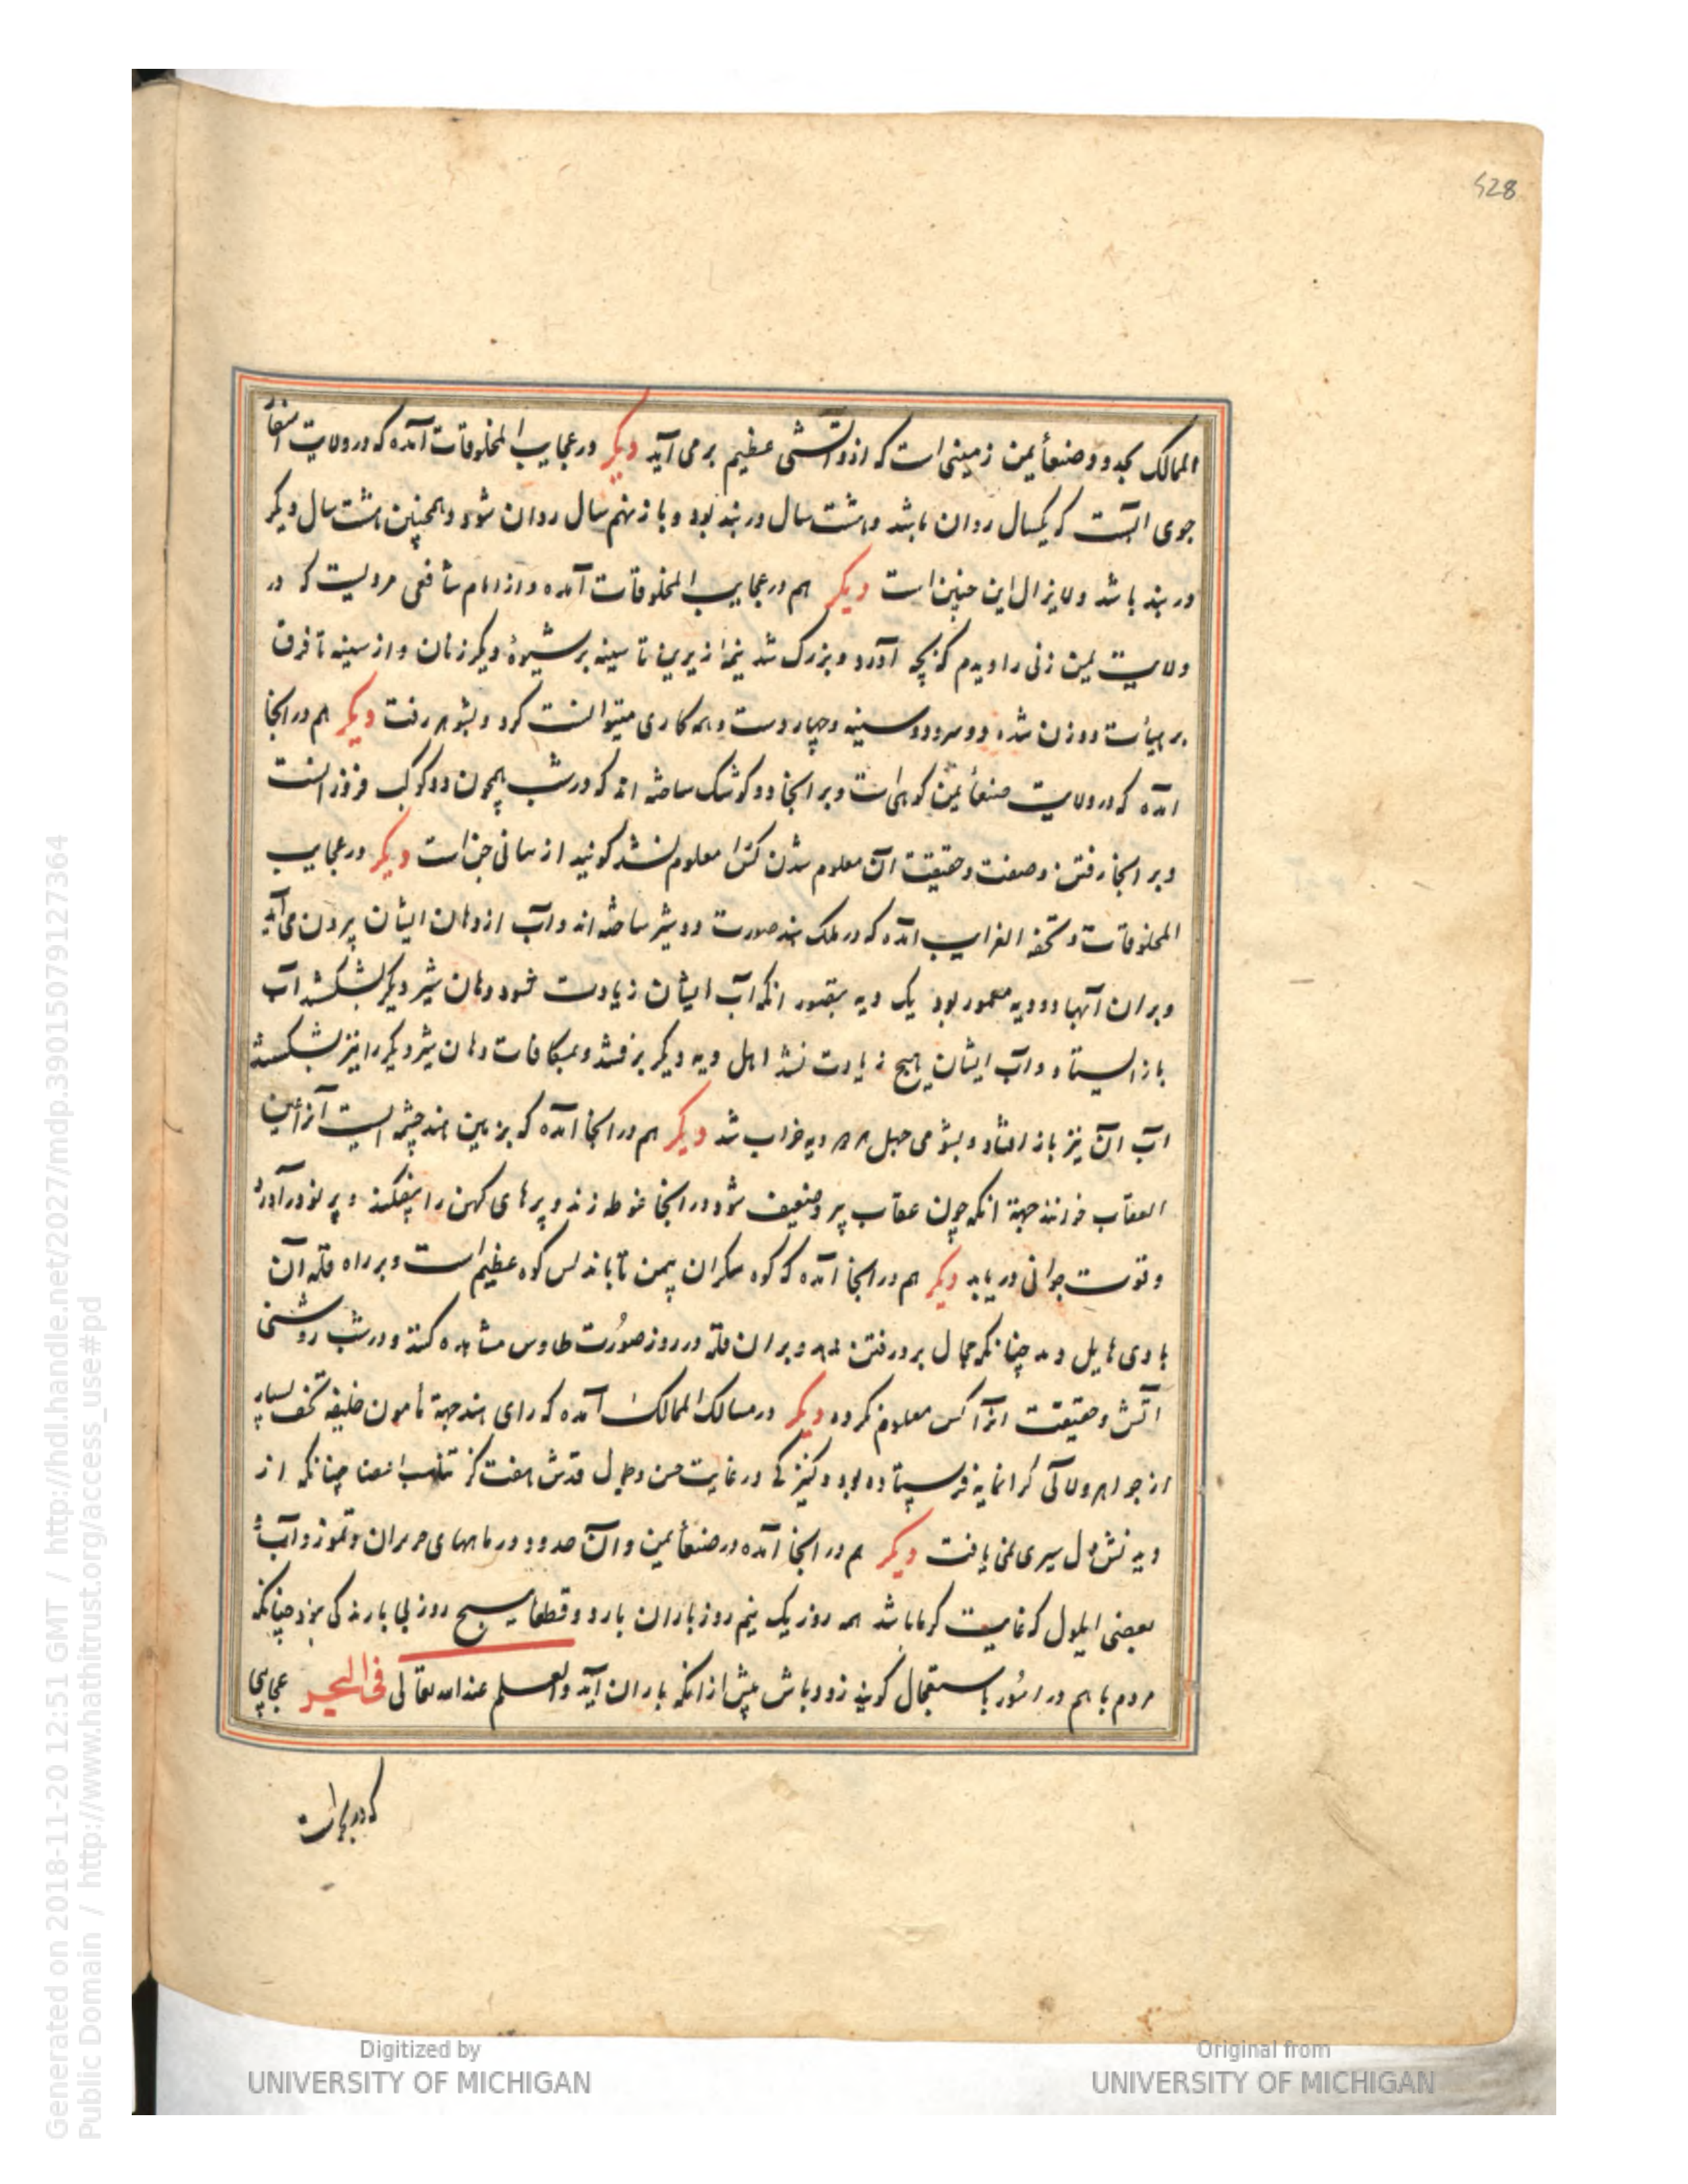 528
الممالک بحدود صنعأ یمن زمینی است که ازو آتشی عظیم برمی آید دیگر در عجایب المخلوقات آمده که در ولایت
جوی آبست که یکسال روان باشد و هشت سال در بند بود و باز نهم سال روان شود و همچنین هشت سال دیگر
در بند باشد و لایزال این چنین است دیگر هم در عجایب المخلوقات آمده و از امام شافعی مرویست که در
ولایت یمن زنی را دیدم که بچه آورد و بزرک شد نیمه از زیرین تا سینه بر شیوۀ دیگر زنان و از سینه تا فرق
بر هیأت دو زن شده دو سر و دو سینه و چهار دست و همه کاری میتوانست کرد و بشوهر رفت دیگر هم در انجا
آمده که در ولایت صنعأ یمن کوهی است و بر انجا دو کوشک ساخته اند که در شب همچون دو کوکب فروزانست
و بر انجا رفتن و صفت و حقیقت آن معلوم شدن کس را معلوم نشد کویند از بنای جن است دیگر در عجایب
المخلوقات و تحفه الغرایب آمده که در ملک هند صورت دو شیر ساخته اند و آب از دهان ایشان بیرون می آید
و بر ان آبها دو دیه معمور بود یک دیه بتصور انکه آب ایشان زیادت شود دهان شیر دیگر بشکستند آب
باز ایستاد و آب ایشان هیچ زیادت نشد اهل دیه دیگر برفتند و بمکافات دهان شیر دیگر را نیز بشکستند
آب آن نیز باز افتاد و بشومی جهل هر دو دیه خراب شد دیگر هم در انجا آمده که بزمین هند چشمه ایست آنرا عین
العقاب خوانند جهة انکه چون عقاب پیر و ضعیف شود در انجا غوطه زند و پرهای کهن را بیفکند و پر نو درآورد
و قوت جوانی دریابد دیگر هم در انجا آمده که کوه مکران یمن تا باندلس کوه عظیم است و بر راه قله آن
بادی هایل دمد چنانکه مجال بر رفتن ندهد و بر ان قله در روز صورت طاوس مشاهده کنند و در شب روشنی
آتش و حقیقت انرا کس معلوم نکرده دیگر در مسالک الممالک آمده که رای هند جهة مأمون خلیفه تحف بسیار
از جواهر و لآلی کرانمایه فرستاده بود و کنیزکی در غایت حسن و جمال قدش هفت کز چنانکه از
دیدنش دل سیری نمی یافت دیگر هم در انجا آمده در صنعأ یمن و آن حدود در ماههای حزیران و تموز و آب و
بعضی ایلول که غایت کرما باشد همه روز یک نیم روز باران بارد و قطعا هیچ روز بی بارندکی نبود چنانکه
مردم با هم در امور باستعجال کویند زود باش پیش از انکه باران آید والعلم عندالله تعالی فی البحر عجایبها
که در بحر است